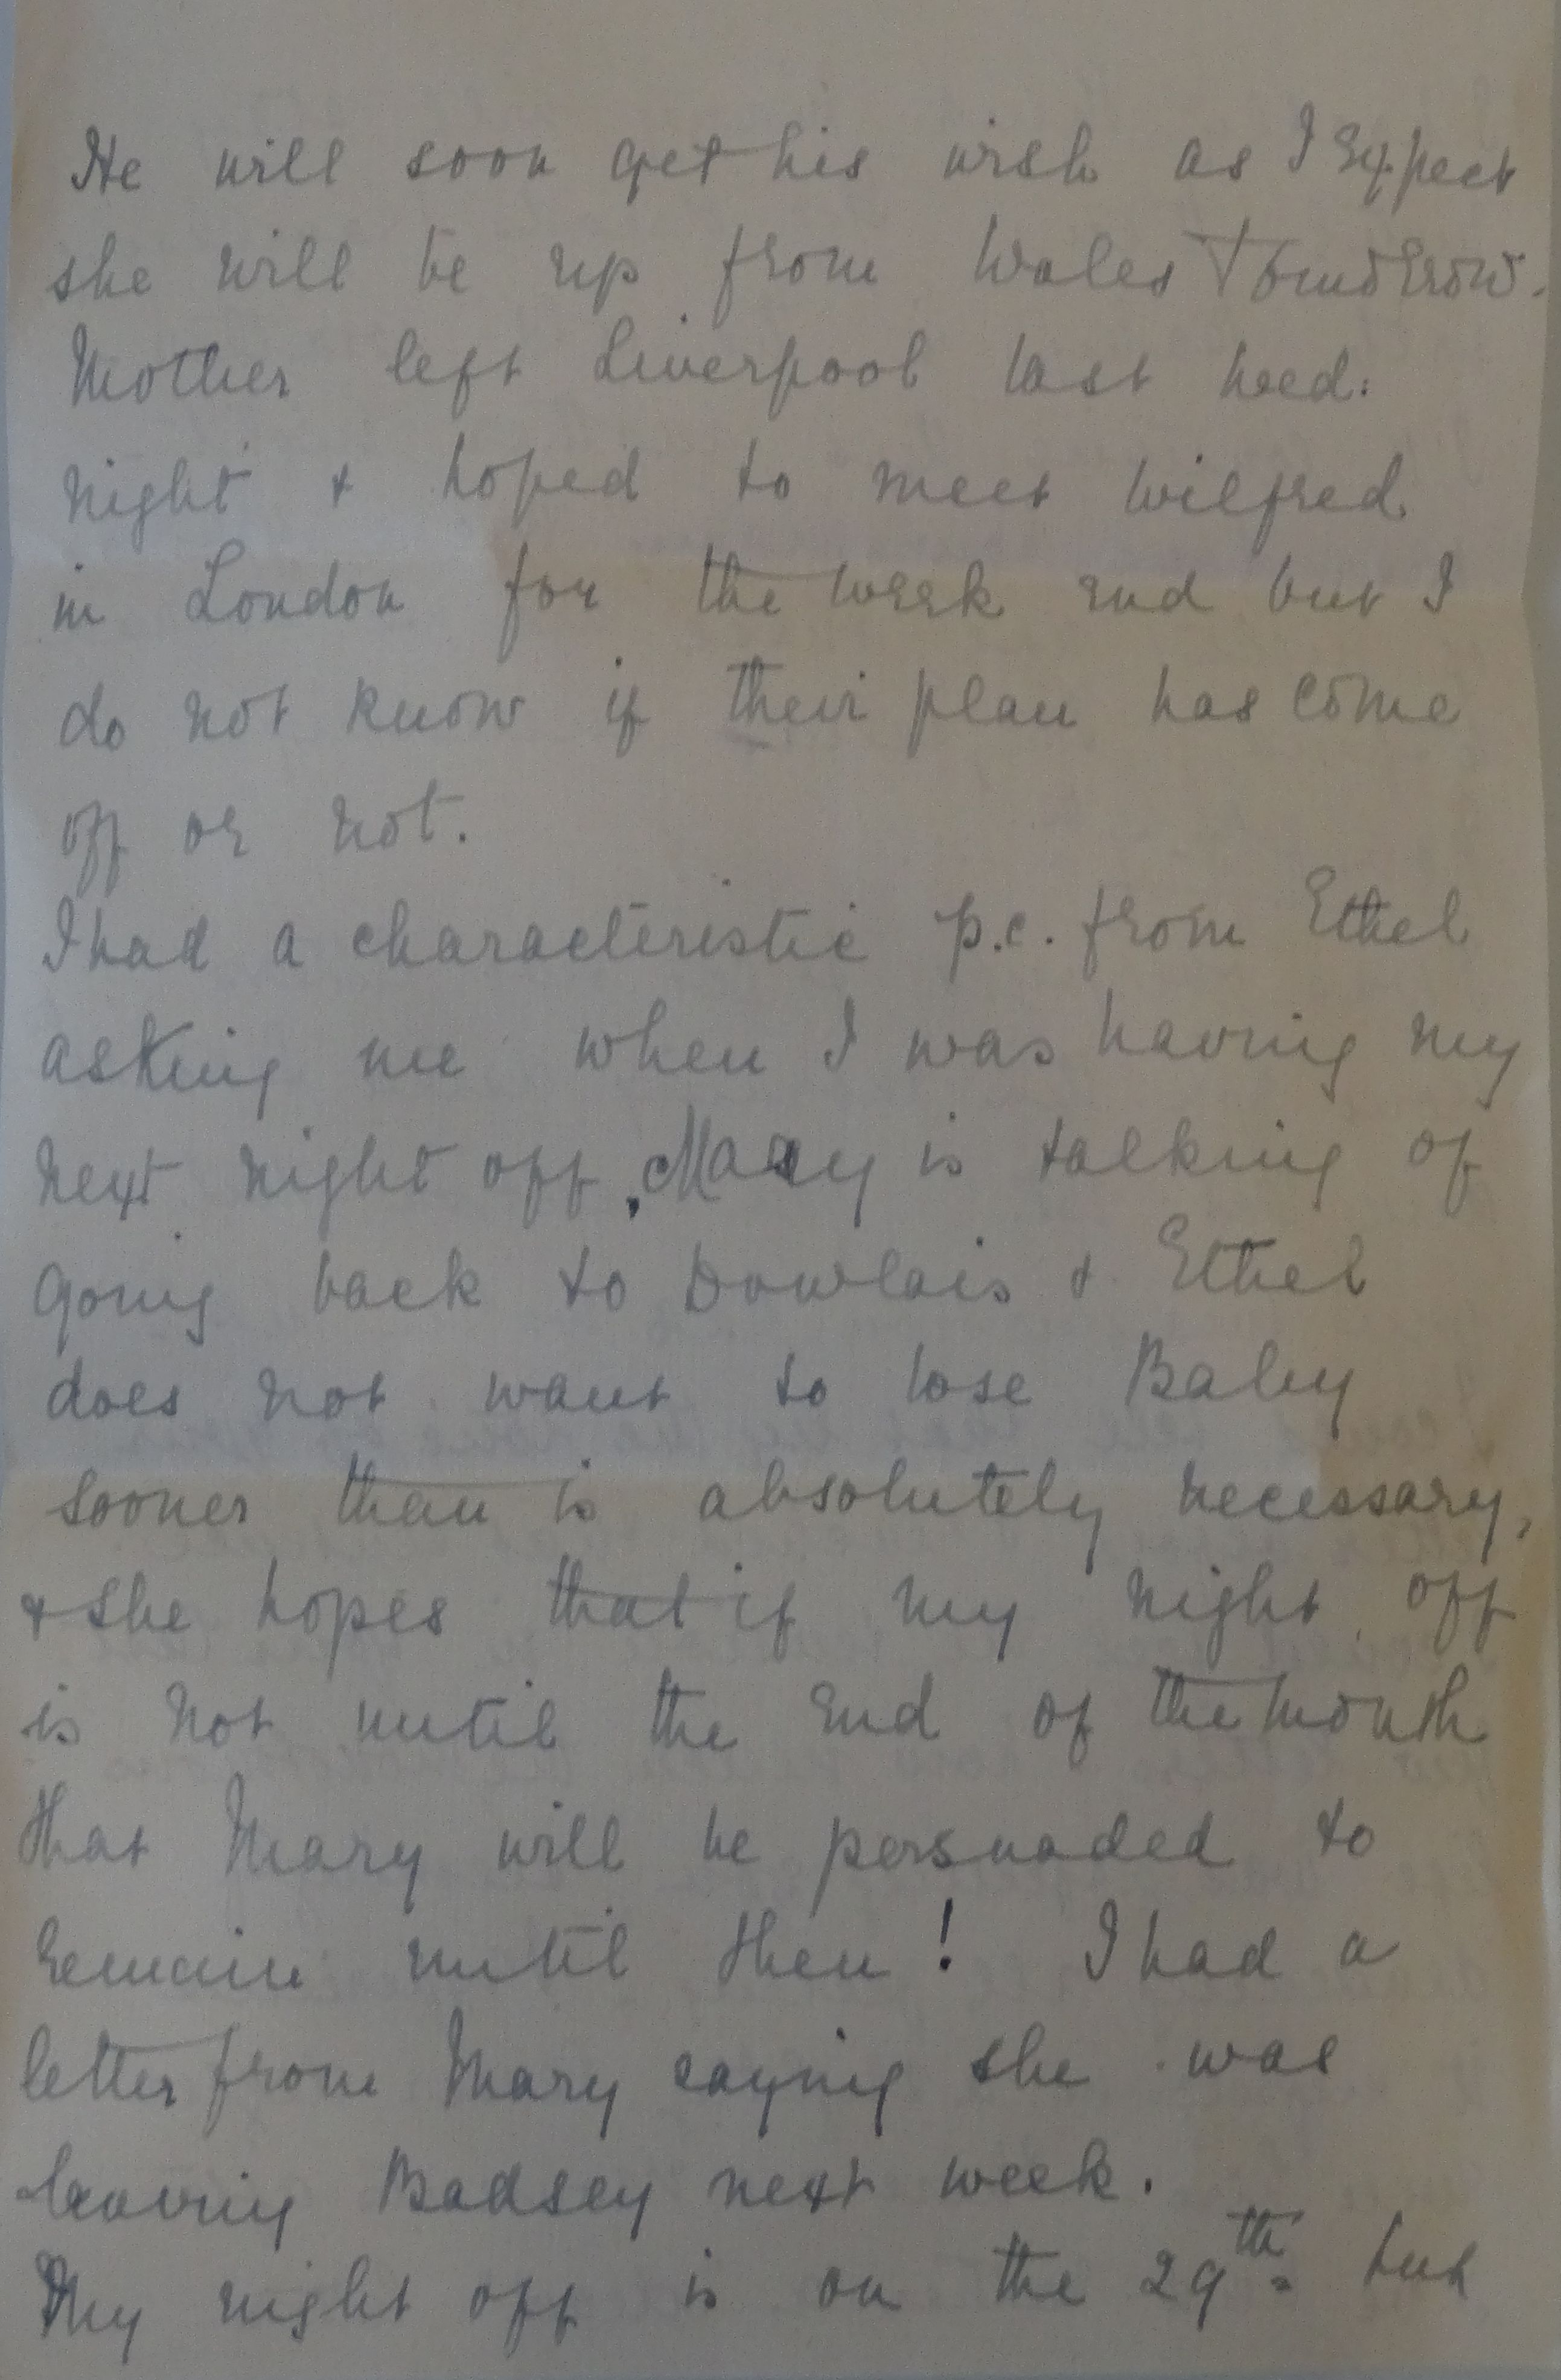 He will soon get his wish as I expect
she will be up from Wales Tomorrow.
Mother left Liverpool last Wed:
night & hoped to meet Wilfred
in London for the week end but I
do not know if their plan has come
off or not.
I had a characteristic p.c. from Ethel
asking me when I was having my
next night off, Mary is talking of
going back to Dowlais & Ethel
does not want to lose Baby
sooner than is absolutely necessary,
& she hopes that if my night off
is not until the end of the month
that Mary will be persuaded to
remain until then! I had a
letter from Mary saying she was
leaving Badsey next week.
My night off is on the 29th but